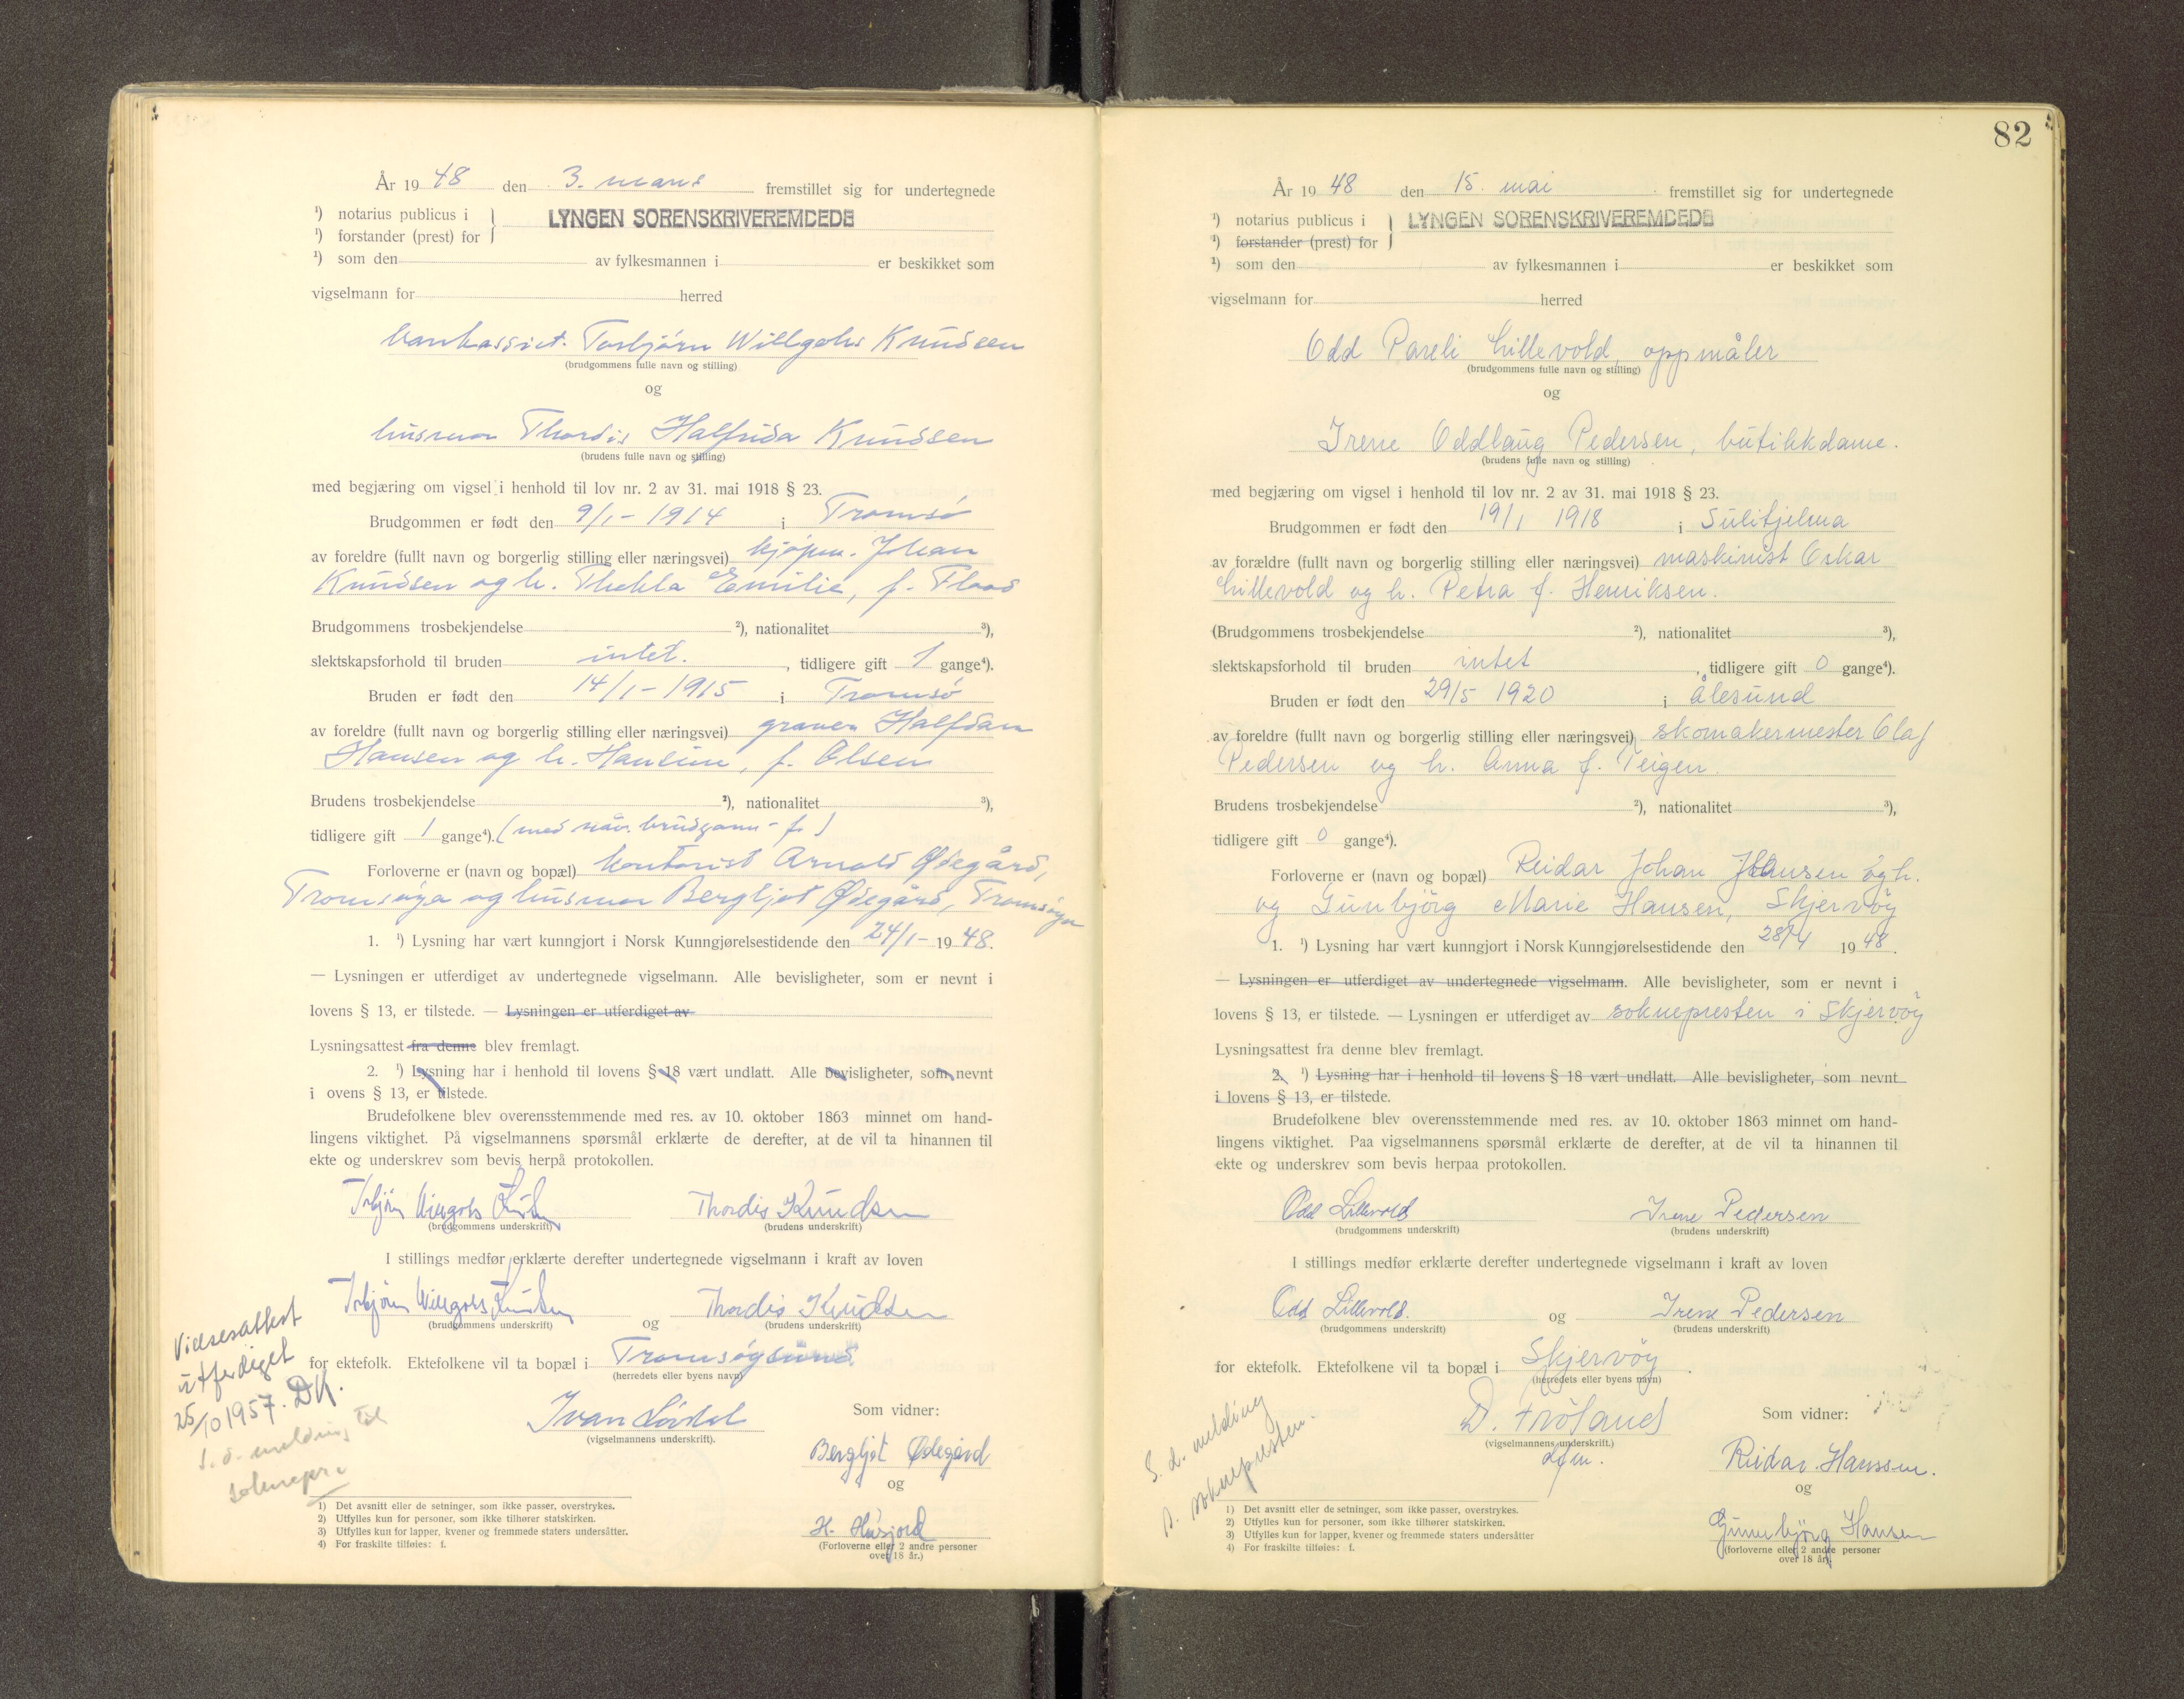 År 19 48 den 3. mars fremstillet sig for undertegnede
¹) notarius publicus i } LYNGEN SORENSKRIVEREMBEDE
¹) forstander (prest) for
¹) som den av fylkesmannen i er beskikket som
vigselmann for herred
bankassist. Torbjørn Willgohs Knudsen
(brudgommens fulle navn og stilling)
og
husmor Thordis Halfrida Knudsen
(brudens fulle navn og stilling)
med begjæring om vigsel i henhold til lov nr. 2 av 31. mai 1918 § 23.
Brudgommen er født den 9/1 - 1914 i Tromsø
av foreldre (fullt navn og borgerlig stilling eller næringsvei) kjøpm. Johan
Knudsen og h. Thekla Emilie, f. Floas
Brudgommens trosbekjendelse ²), nationalitet ³),
slektskapsforhold til bruden intet. , tidligere gift 1 gange⁴).
Bruden er født den 14/1 - 1915 i Tromsø
av foreldre (fullt navn og borgerlig stilling eller næringsvei) graver Halfdan
Hansen og h. Hansine, f. Olsen
Brudens trosbekjendelse ²), nationalitet ³),
tidligere gift 1 gange⁴). (med nåv. brudgom - f.)
Forloverne er (navn og bopæl) kontorist Arnold Ødegård,
Tromsøya og husmor Bergljot Ødegård, Tromsøya
1. ¹) Lysning har vært kunngjort i Norsk Kunngjørelsestidende den 24/1 - 19 48.
— Lysningen er utferdiget av undertegnede vigselmann. Alle bevisligheter, som er nevnt i
lovens § 13, er tilstede. — Lysningen er utferdiget av
Lysningsattest fra denne blev fremlagt.
2. ¹) Lysning har i henhold til lovens § 18 vært undlatt. Alle bevisligheter, som nevnt
i ovens § 13, er tilstede.
Brudefolkene blev overensstemmende med res. av 10. oktober 1863 minnet om hand-
lingens viktighet. På vigselmannens spørsmål erklærte de derefter, at de vil ta hinannen til
ekte og underskrev som bevis herpå protokollen.
Torbjørn Willgohs Knudsen Thordis Knudsen
(brudgommens underskrift) (brudens underskrift)
I stillings medfør erklærte derefter undertegnede vigselmann i kraft av loven
Torbjørn Willgohs Knudsen og Thordis Knudsen
(brudgommens underskrift) (brudens underskrift)
for ektefolk. Ektefolkene vil ta bopæl i Tromsøysund
(herredets eller byens navn)
Vielsesattest
utferdiget
25/10 1957. DK.
S. d. melding til
sokнepr.
Ivan
(vigselmannens underskrift).
Som vidner:
Bergljot Ødegård
og
H. Husjord
(Forloverne eller 2 andre personer
over 18 år.)
1) Det avsnitt eller de setninger, som ikke passer, overstrykes.
2) Utfylles kun for personer, som ikke tilhører statskirken.
3) Utfylles kun for lapper, kvener og fremmede staters undersåtter.
4) For fraskilte tilføies: f.
82
År 19 48 den 15. mai fremstillet sig for undertegnede
¹) notarius publicus i } LYNGEN SORENSKRIVEREMBEDE
¹) forstander (prest) for
¹) som den av fylkesmannen i er beskikket som
vigselmann for herred
Odd Pareli Lillevold, oppmåler
(brudgommens fulle navn og stilling)
og
Irene Oddlaug Pedersen, butikkdame.
(brudens fulle navn og stilling)
med begjæring om vigsel i henhold til lov nr. 2 av 31. mai 1918 § 23.
Brudgommen er født den 19/1 1918 i Sulitjelma
av forældre (fullt navn og borgerlig stilling eller næringsvei) maskinist Oskar
Lillevold og h. Petra f. Henriksen.
(Brudgommens trosbekjendelse ²), nationalitet ³),
slektskapsforhold til bruden intet , tidligere gift 0 gange⁴).
Bruden er født den 29/5 1920 i Ålesund
av foreldre (fullt navn og borgerlig stilling eller næringsvei) skomakermester Olaf
Pedersen og h. Anna f. Teigen.
Brudens trosbekjendelse ²), nationalitet ³),
tidligere gift 0 gange⁴).
Forloverne er (navn og bopæl) Reidar Johan Hansen og h.
og Gunbjörg Marie Hansen, Skjervöy
1. ¹) Lysning har vært kunngjort i Norsk Kunngjørelsestidende den 28/4 19 48.
— Lysningen er utferdiget av undertegnede vigselmann. Alle bevisligheter, som er nevnt i
lovens § 13, er tilstede. — Lysningen er utferdiget av soknepresten i Skjervöy
Lysningsattest fra denne blev fremlagt.
2. ¹) Lysning har i henhold til lovens § 18 vært undlatt. Alle bevisligheter, som nevnt
i lovens § 13, er tilstede.
Brudefolkene blev overensstemmende med res. av 10. oktober 1863 minnet om hand-
lingens viktighet. Paa vigselmannens spørsmål erklærte de derefter, at de vil ta hinannen til
ekte og underskrev som bevis herpaa protokollen.
Odd Lillevold Irene Pedersen
(brudgommens underskrift) (brudens underskrift)
I stillings medfør erklærte derefter undertegnede vigselmann i kraft av loven
Odd Lillevold. og Irene Pedersen
(brudgommens underskrift) (brudens underskrift)
for ektefolk. Ektefolkene vil ta bopæl i Skjervöy
(herredets eller byens navn)
S. d. melding
s. soknepresten.
D. Fröland
(vigselmannens underskrift.)
dfm.
Som vidner:
Reidar Hanssen.
og
Gunnbjörg Hansen
(forloverne eller 2 andre personer
over 18 år)
1) Det avsnitt eller de setninger, som ikke passer, overstrykes.
2) Utfylles kun for personer, som ikke tilhører statskirken.
3) Utfylles kun for lapper, kvener og fremmede staters undersåtter
4) For fraskilte tilføies: f.